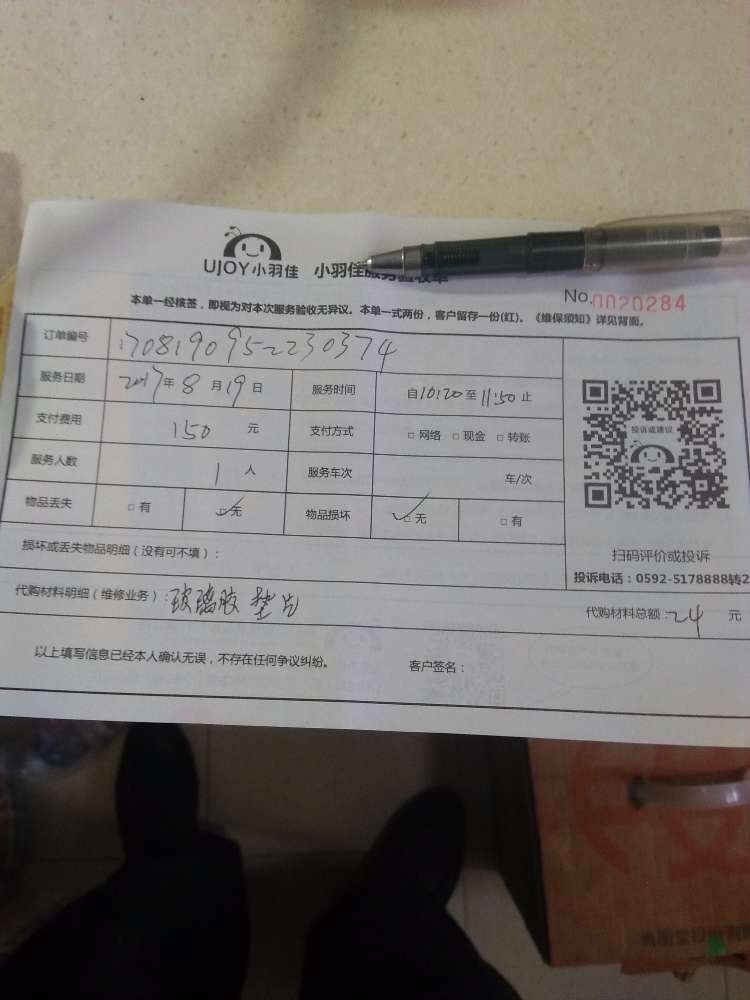 UJOY小羽佳 小羽佳服务验收单
No.0020284
本单一经核签，即视为对本次服务验收无异议。本单一式两份，客户留存一份(红)。《维保须知》详见背面。
订单编号 1708190952230374
服务日期 2017年8月19日 服务时间 自10:20至11:50止
支付费用 150 元 支付方式 □ 网络 □ 现金 □ 转账
投诉或建议
服务人数 1 人 服务车次 车/次
物品丢失 □ 有 ☑无 物品损坏 ☑无 □ 有
扫码评价或投诉
损坏或丢失物品明细（没有可不填）：
投诉电话：0592-5178888转2
代购材料明细（维修业务）：玻璃胶 垫片 代购材料总额：24 元
以上填写信息已经本人确认无误，不存在任何争议纠纷。 客户签名：